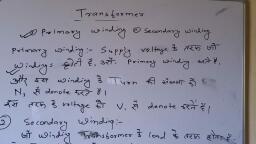 Transformer
① Primary winding ② Secondary winding
Primary winding:- Supply voltage के तरफ जो
windings होती है, उसे Primary winding कहते है,
और इस winding के Turn की संख्या को
N₁ से denote करते है।
इस तरफ के voltage को V₁ से denote करते है।
② Secondary Winding:-
जो winding Transformer के load के तरफ होता है